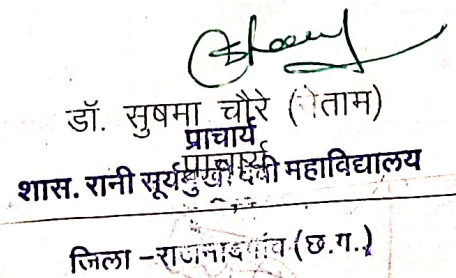 डॉ. सुषमा चौरे (नेताम)
प्राचार्य
प्राचार्य
शास. रानी सूर्यमुखी देवी महाविद्यालय
जिला - राजनांदगांव (छ.ग.)